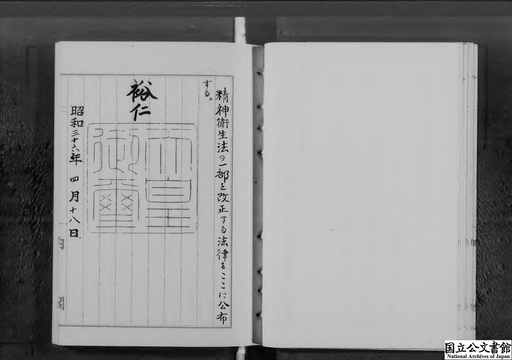 精神衛生法の一部を改正する法律をここに公布
する。
裕仁
天皇
御璽
昭和三十六年四月十八日
内閣
国立公文書館
National Archives of Japan